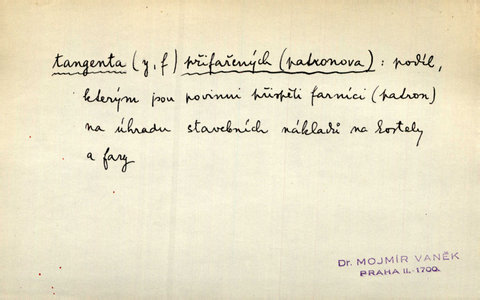 tangenta (y, f) přifařených (patronova) : podíl,
kterým jsou povinni přispěti farníci (patron)
na úhradu stavebních nákladů na kostely
a fary
Dr. MOJMÍR VANĚK
PRAHA II.-1700.